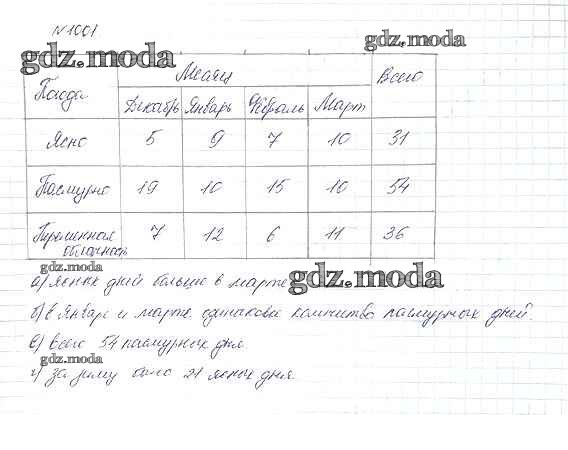 №1001
gdz.moda
gdz.moda
Погода Месяц Всего
Декабрь Январь Февраль Март
Ясно 5 9 7 10 31
Пасмурно 19 10 15 10 54
Переменная облачность 7 12 6 11 36
gdz.moda
gdz.moda
а) ясных дней больше в марте
б) в Январе и марте одинаковое количество пасмурных дней.
в) всего 54 пасмурных дня
gdz.moda
г) за зиму было 21 ясных дня.